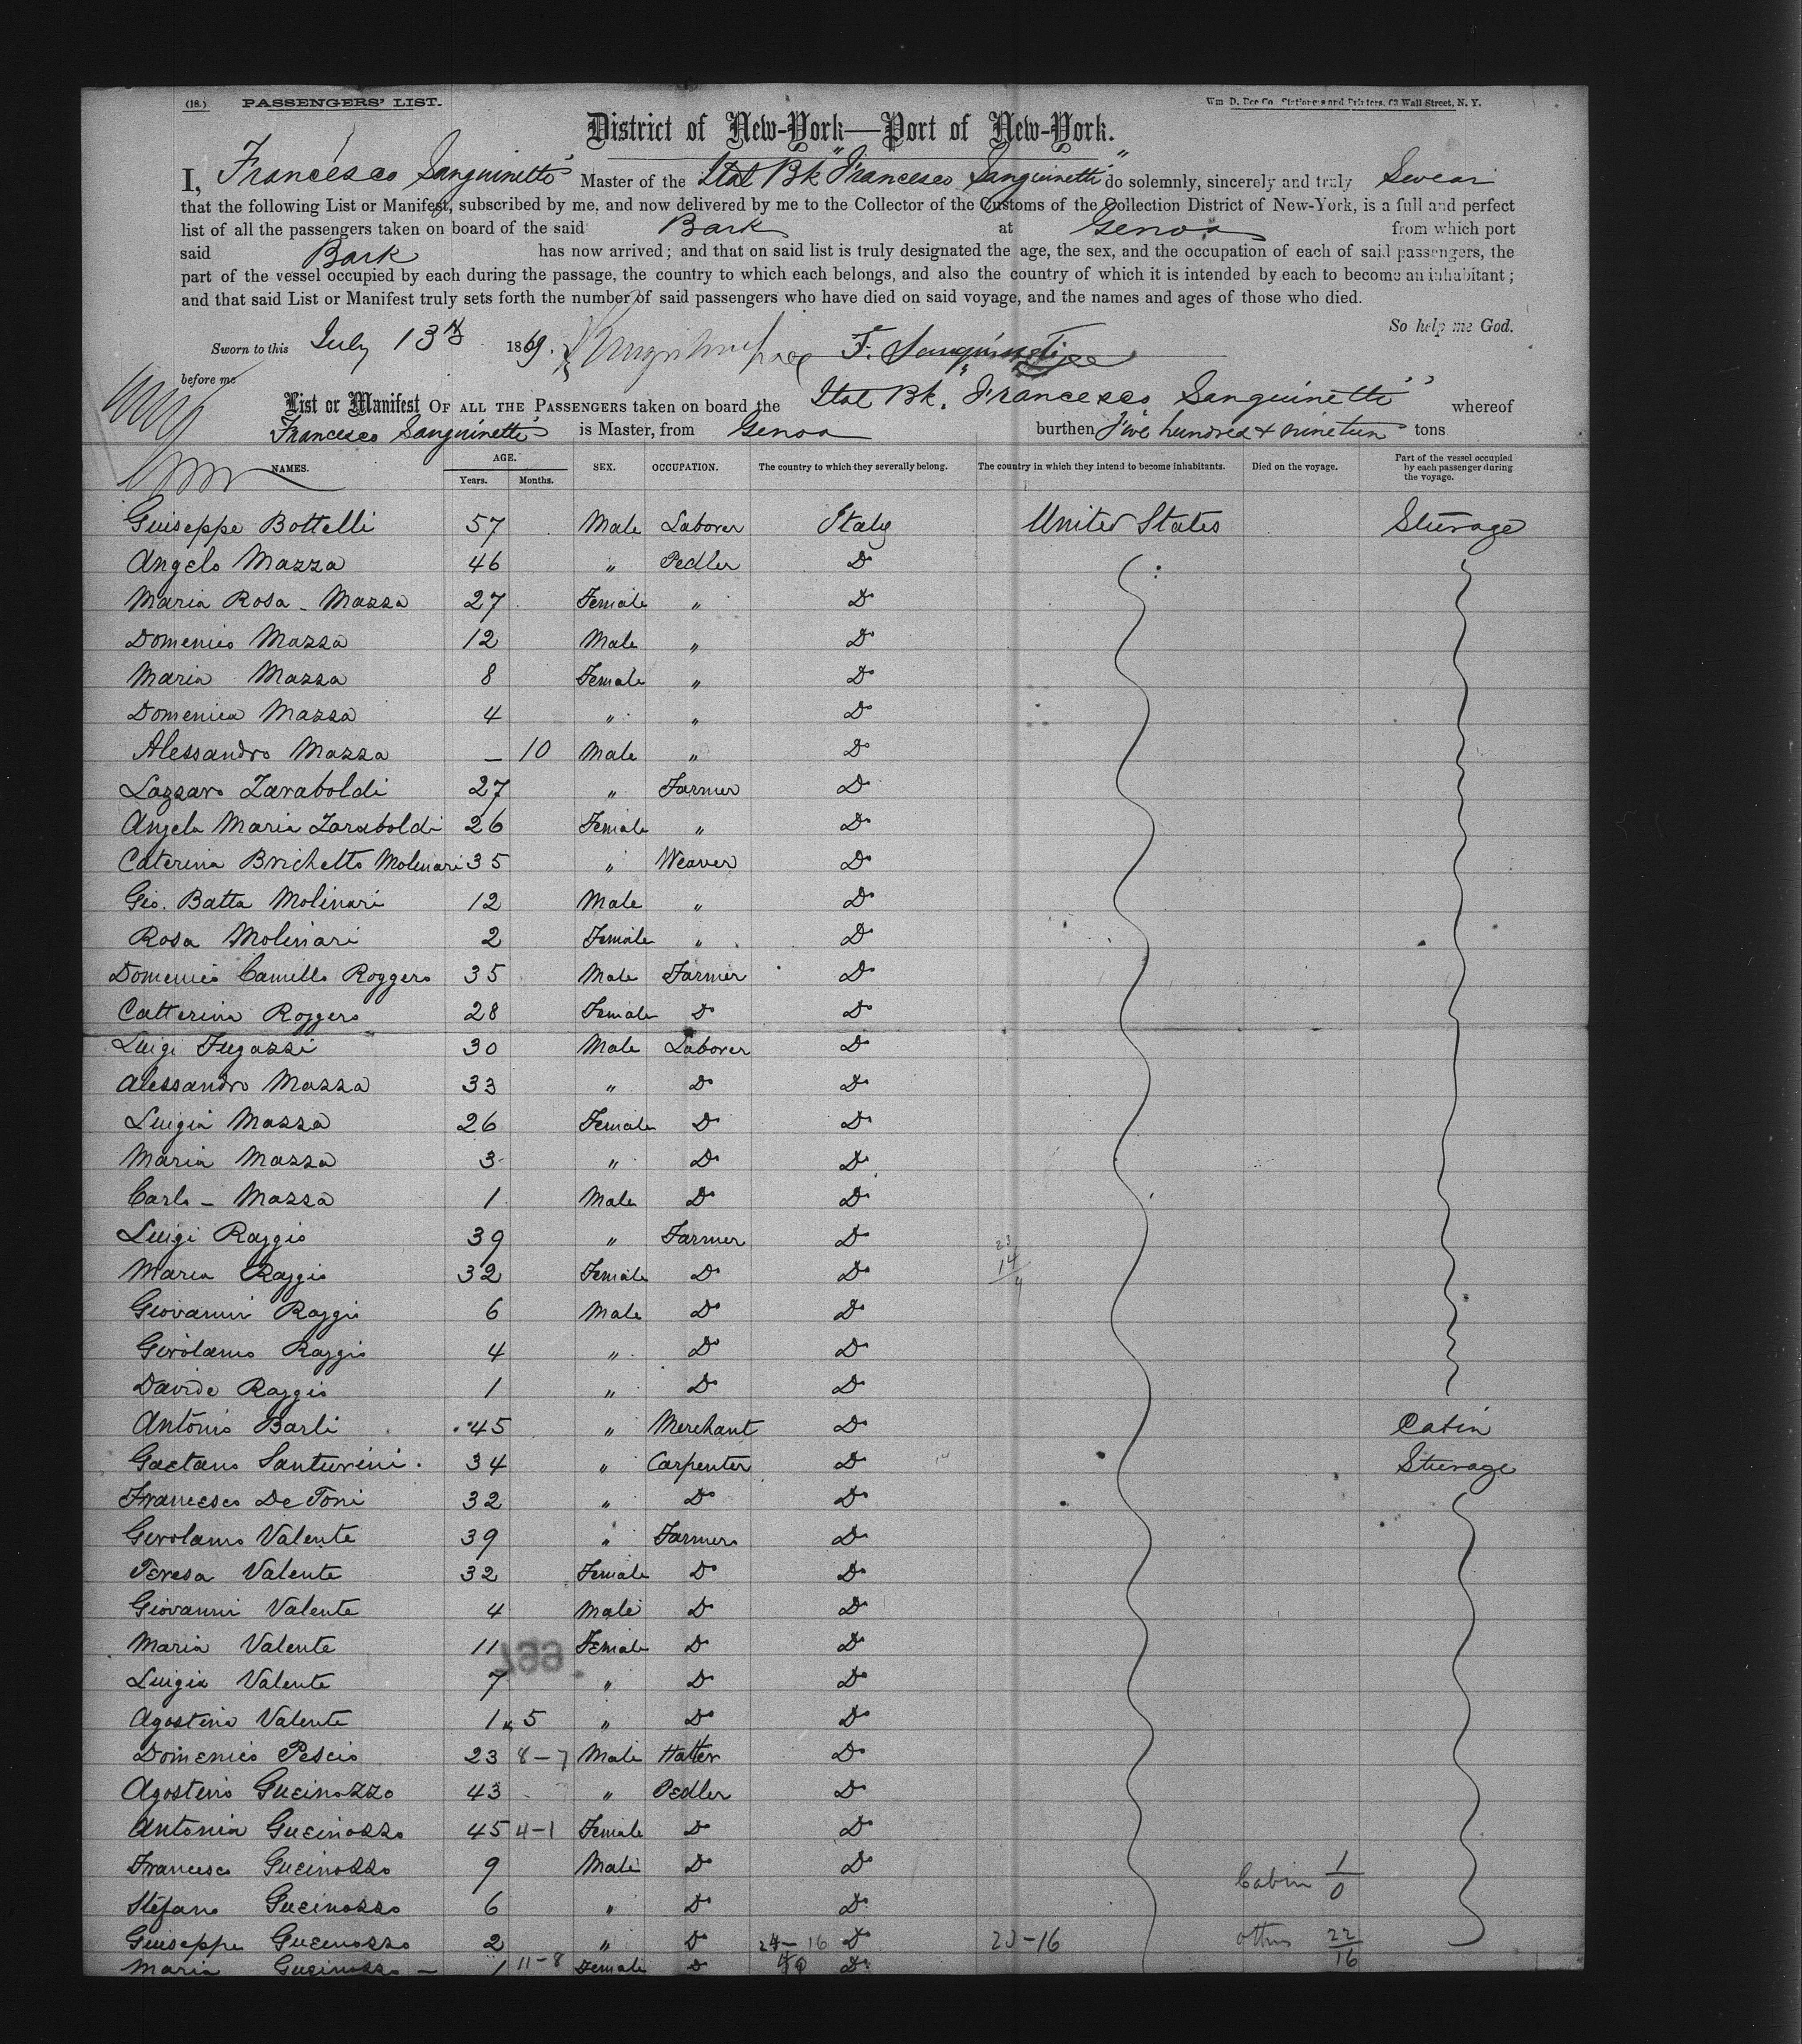 (18.) PASSENGERS' LIST.
Wm. D. Roe Co. Stationers and Printers, 63 Wall Street, N. Y.
District of New-York—Port of New-York.
I, Francesco Sanguinetti Master of the Ital Bk "Francesco Sanguinetti" do solemnly, sincerely and truly Swear
that the following List or Manifest, subscribed by me, and now delivered by me to the Collector of the Customs of the Collection District of New-York, is a full and perfect
list of all the passengers taken on board of the said Bark at Genoa from which port
said Bark has now arrived; and that on said list is truly designated the age, the sex, and the occupation of each of said passengers, the
part of the vessel occupied by each during the passage, the country to which each belongs, and also the country of which it is intended by each to become an inhabitant;
and that said List or Manifest truly sets forth the number of said passengers who have died on said voyage, and the names and ages of those who died.
So help me God.
Sworn to this July 13th 1869. F. Sanguinetti
before me
List or Manifest OF ALL THE PASSENGERS taken on board the Ital Bk. "Francesco Sanguinetti" whereof
Francesco Sanguinetti is Master, from Genoa burthen Five hundred & nineteen tons
NAMES. AGE. Years. Months. SEX. OCCUPATION. The country to which they severally belong. The country in which they intend to become inhabitants. Died on the voyage. Part of the vessel occupied by each passenger during the voyage.
Guiseppe Bottelli 57 Male Laborer Italy United States Steerage
Angelo Mazza 46 " Pedler Do
Maria Rosa - Mazza 27 Female " Do
Domenico Mazza 12 Male " Do
Maria Mazza 8 Female " Do
Domenica Mazza 4 " " Do
Alessandro Mazza — 10 Male " Do
Lazzaro Zaraboldi 27 " Farmer Do
Angela Maria Zaraboldi 26 Female " Do
Caterina Brichetto Molinari 35 " Weaver Do
Gio. Batta Molinari 12 Male " Do
Rosa Molinari 2 Female " Do
Domenico Camillo Roggero 35 Male Farmer Do
Catterina Roggero 28 Female Do Do
Luigi Fugazzi 30 Male Laborer Do
Alessandro Mazza 33 " Do Do
Luigia Mazza 26 Female Do Do
Maria Mazza 3 " Do Do
Carlo - Mazza 1 Male Do Do
Luigi Raggio 39 " Farmer Do
Maria Raggio 32 Female Do Do
Giovanni Raggio 6 Male Do Do
Girolamo Raggio 4 " Do Do
Davide Raggio 1 " Do Do
Antonio Barli 45 " Merchant Do Cabin
Gaetano Santurini 34 " Carpenter Do Steerage
Francesco De Toni 32 " Do Do
Gerolamo Valente 39 " Farmer Do
Teresa Valente 32 Female Do Do
Giovanni Valente 4 Male Do Do
Maria Valente 11 Female Do Do
Luigia Valente 7 " Do Do
Agostina Valente 1 5 " Do Do
Domenico Pescio 23 8-7 Male Hatter Do
Agostino Gueinozzo 43 " Pedler Do
Antonia Gueinozzo 45 4-1 Female Do Do
Francesco Gueinozzo 9 Male Do Do Cabin 1/0
Stefano Gueinozzo 6 " Do Do
Guiseppe Gueinozzo 2 " Do 24-16 Do 23-16 others 22/16
Maria Gueinozzo — 1 11-8 Female Do Do